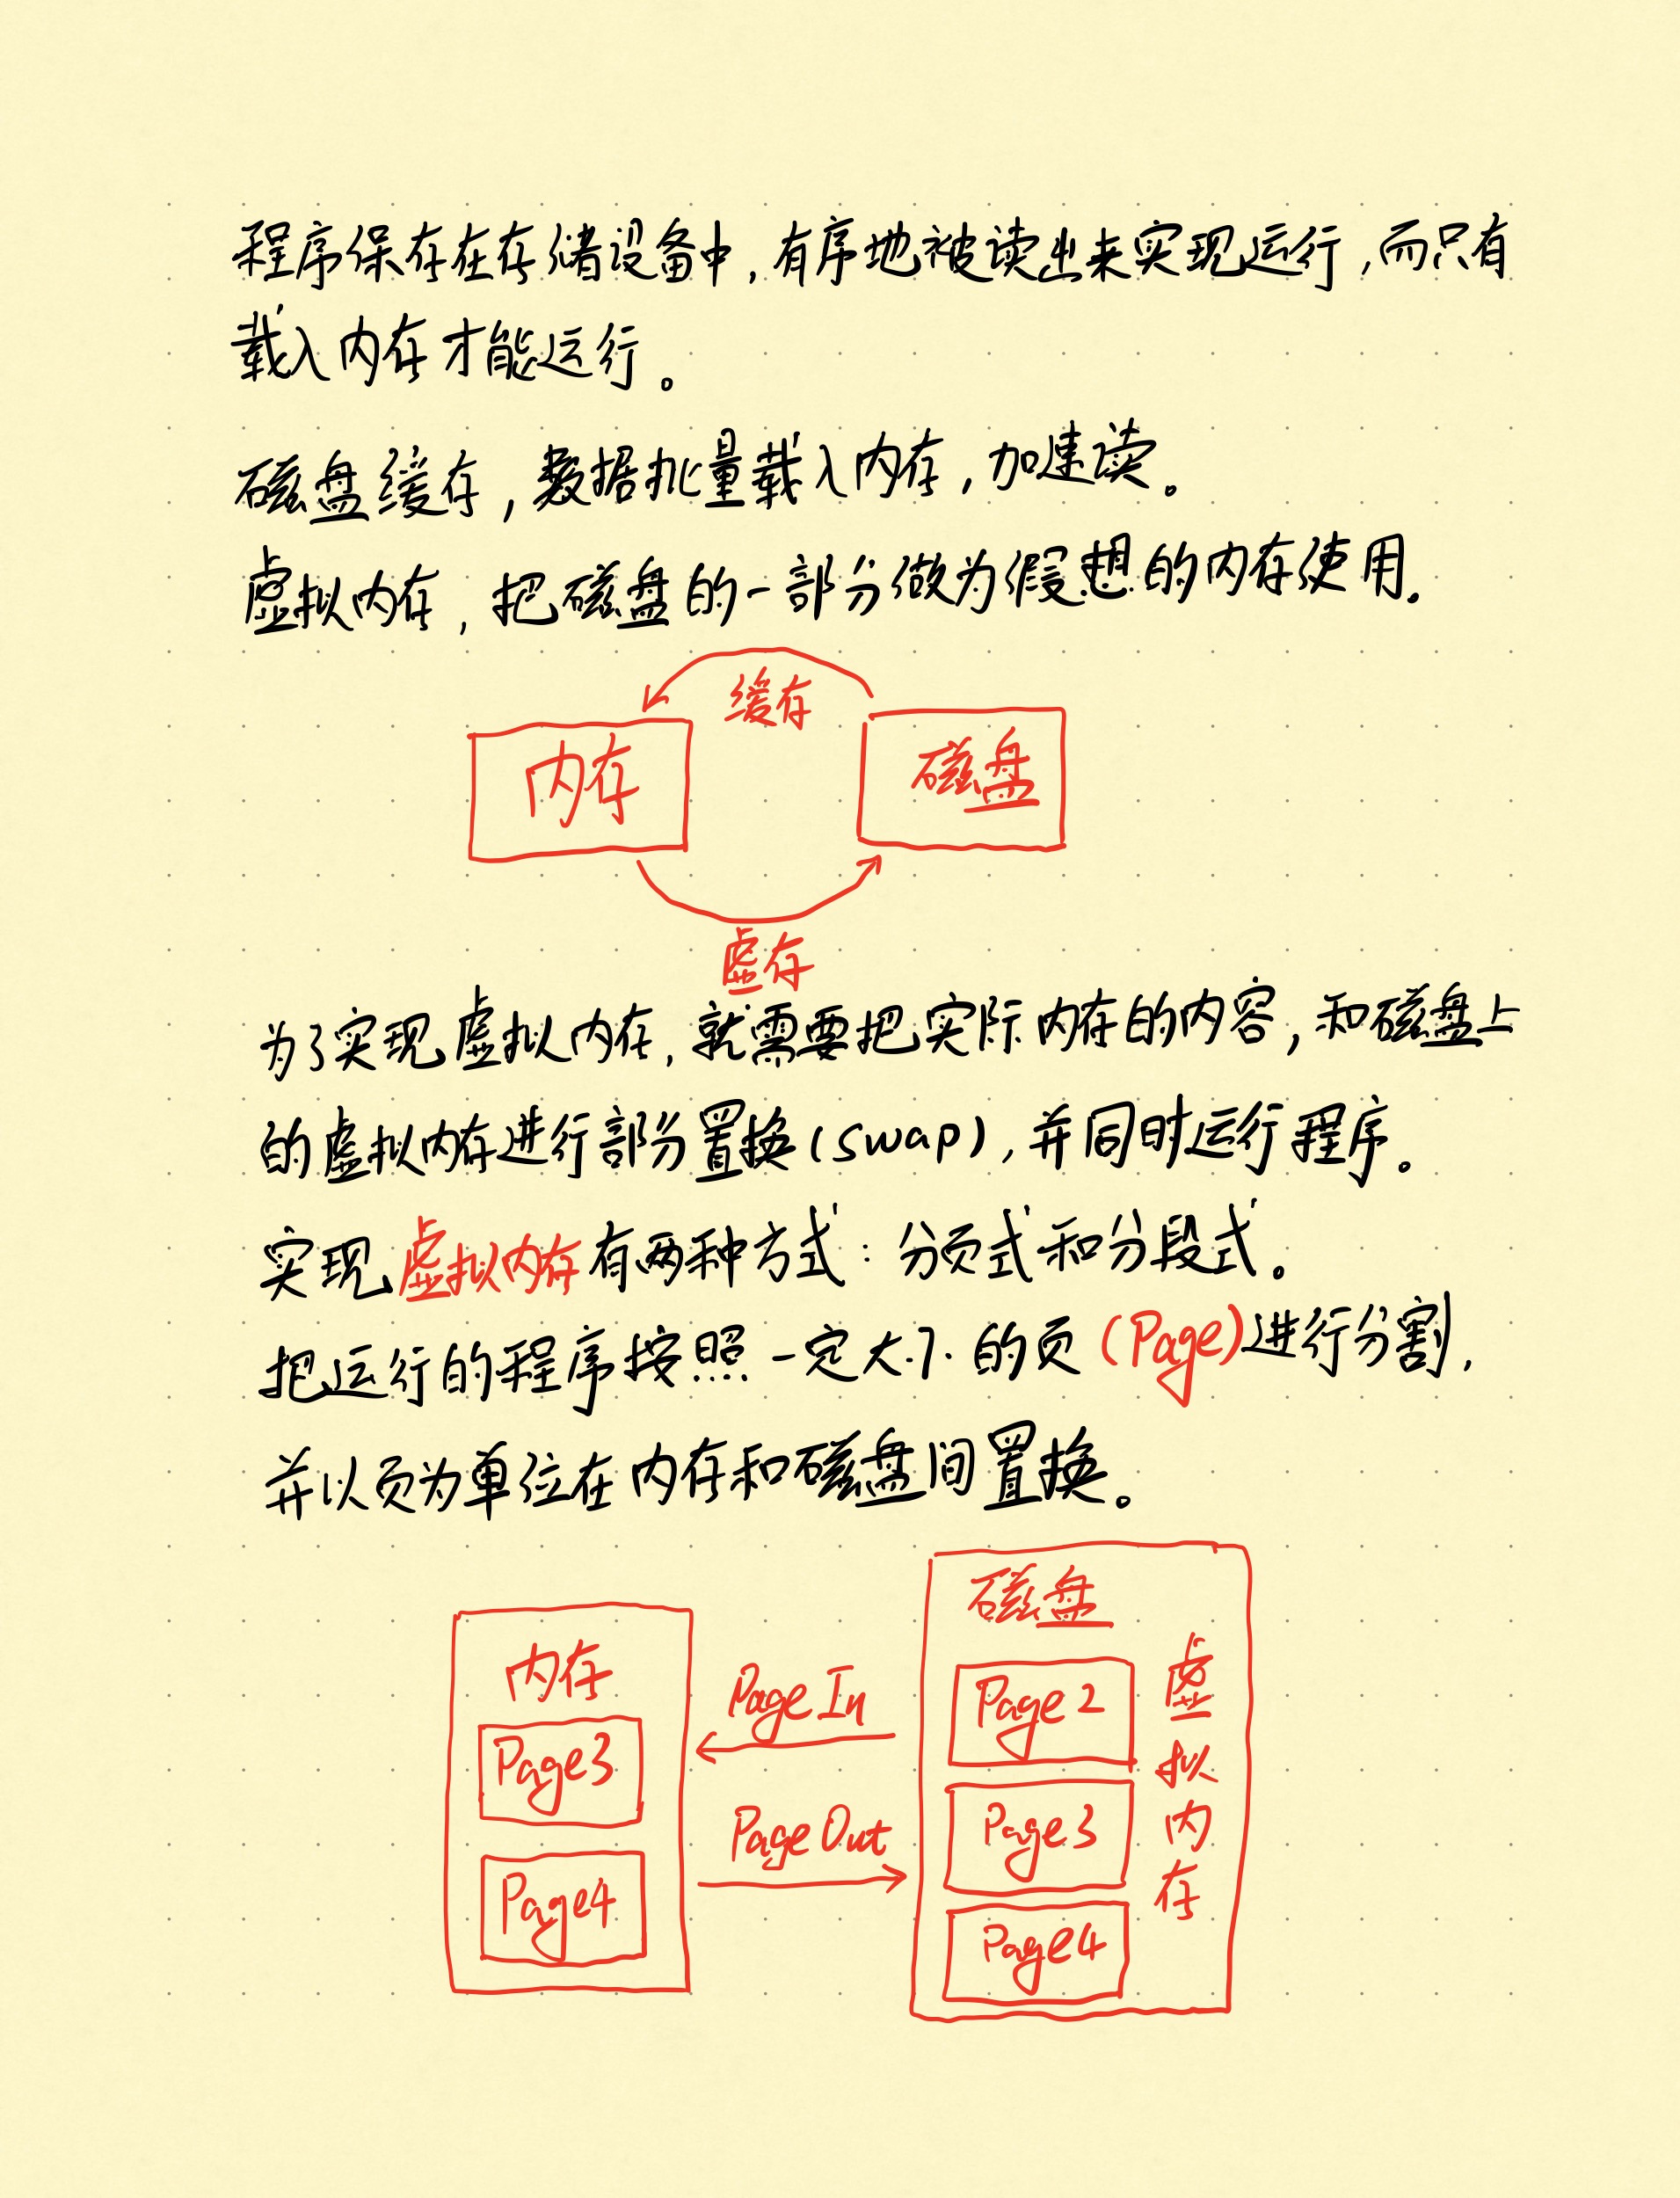 程序保存在存储设备中,有序地被读出来实现运行,而只有
载入内存才能运行。
磁盘缓存,数据批量载入内存,加速读。
虚拟内存,把磁盘的一部分做为假想的内存使用.
缓存
内存
磁盘
虚存
为了实现虚拟内存,就需要把实际内存的内容,和磁盘上
的虚拟内存进行部分置换(swap),并同时运行程序。
实现虚拟内存有两种方式:分页式和分段式。
把运行的程序按照一定大小的页(Page)进行分割,
并以页为单位在内存和磁盘间置换。
内存
Page3
Page4
Page In
Page Out
磁盘
Page 2
Page3
Page4
虚拟内存